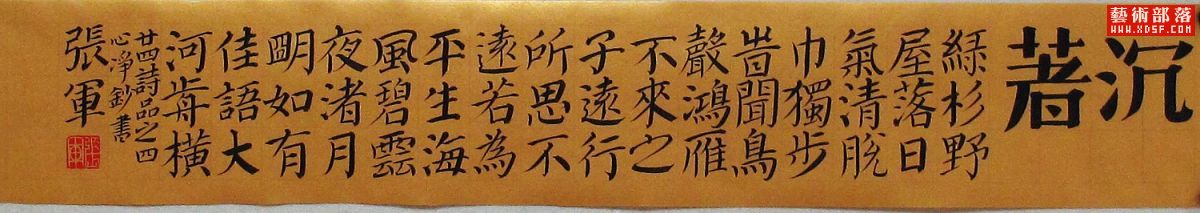 藝術部落
WWW.XDSF.COM
沉著
綠杉野
屋落日
氣清脫
巾獨步
旹聞鳥
聲鴻雁
不來之
子遠行
所思不
遠若為
平生海
風碧雲
夜渚月
朙如有
佳語大
河歬橫
廿四詩品之四
心淨鈔書
張軍